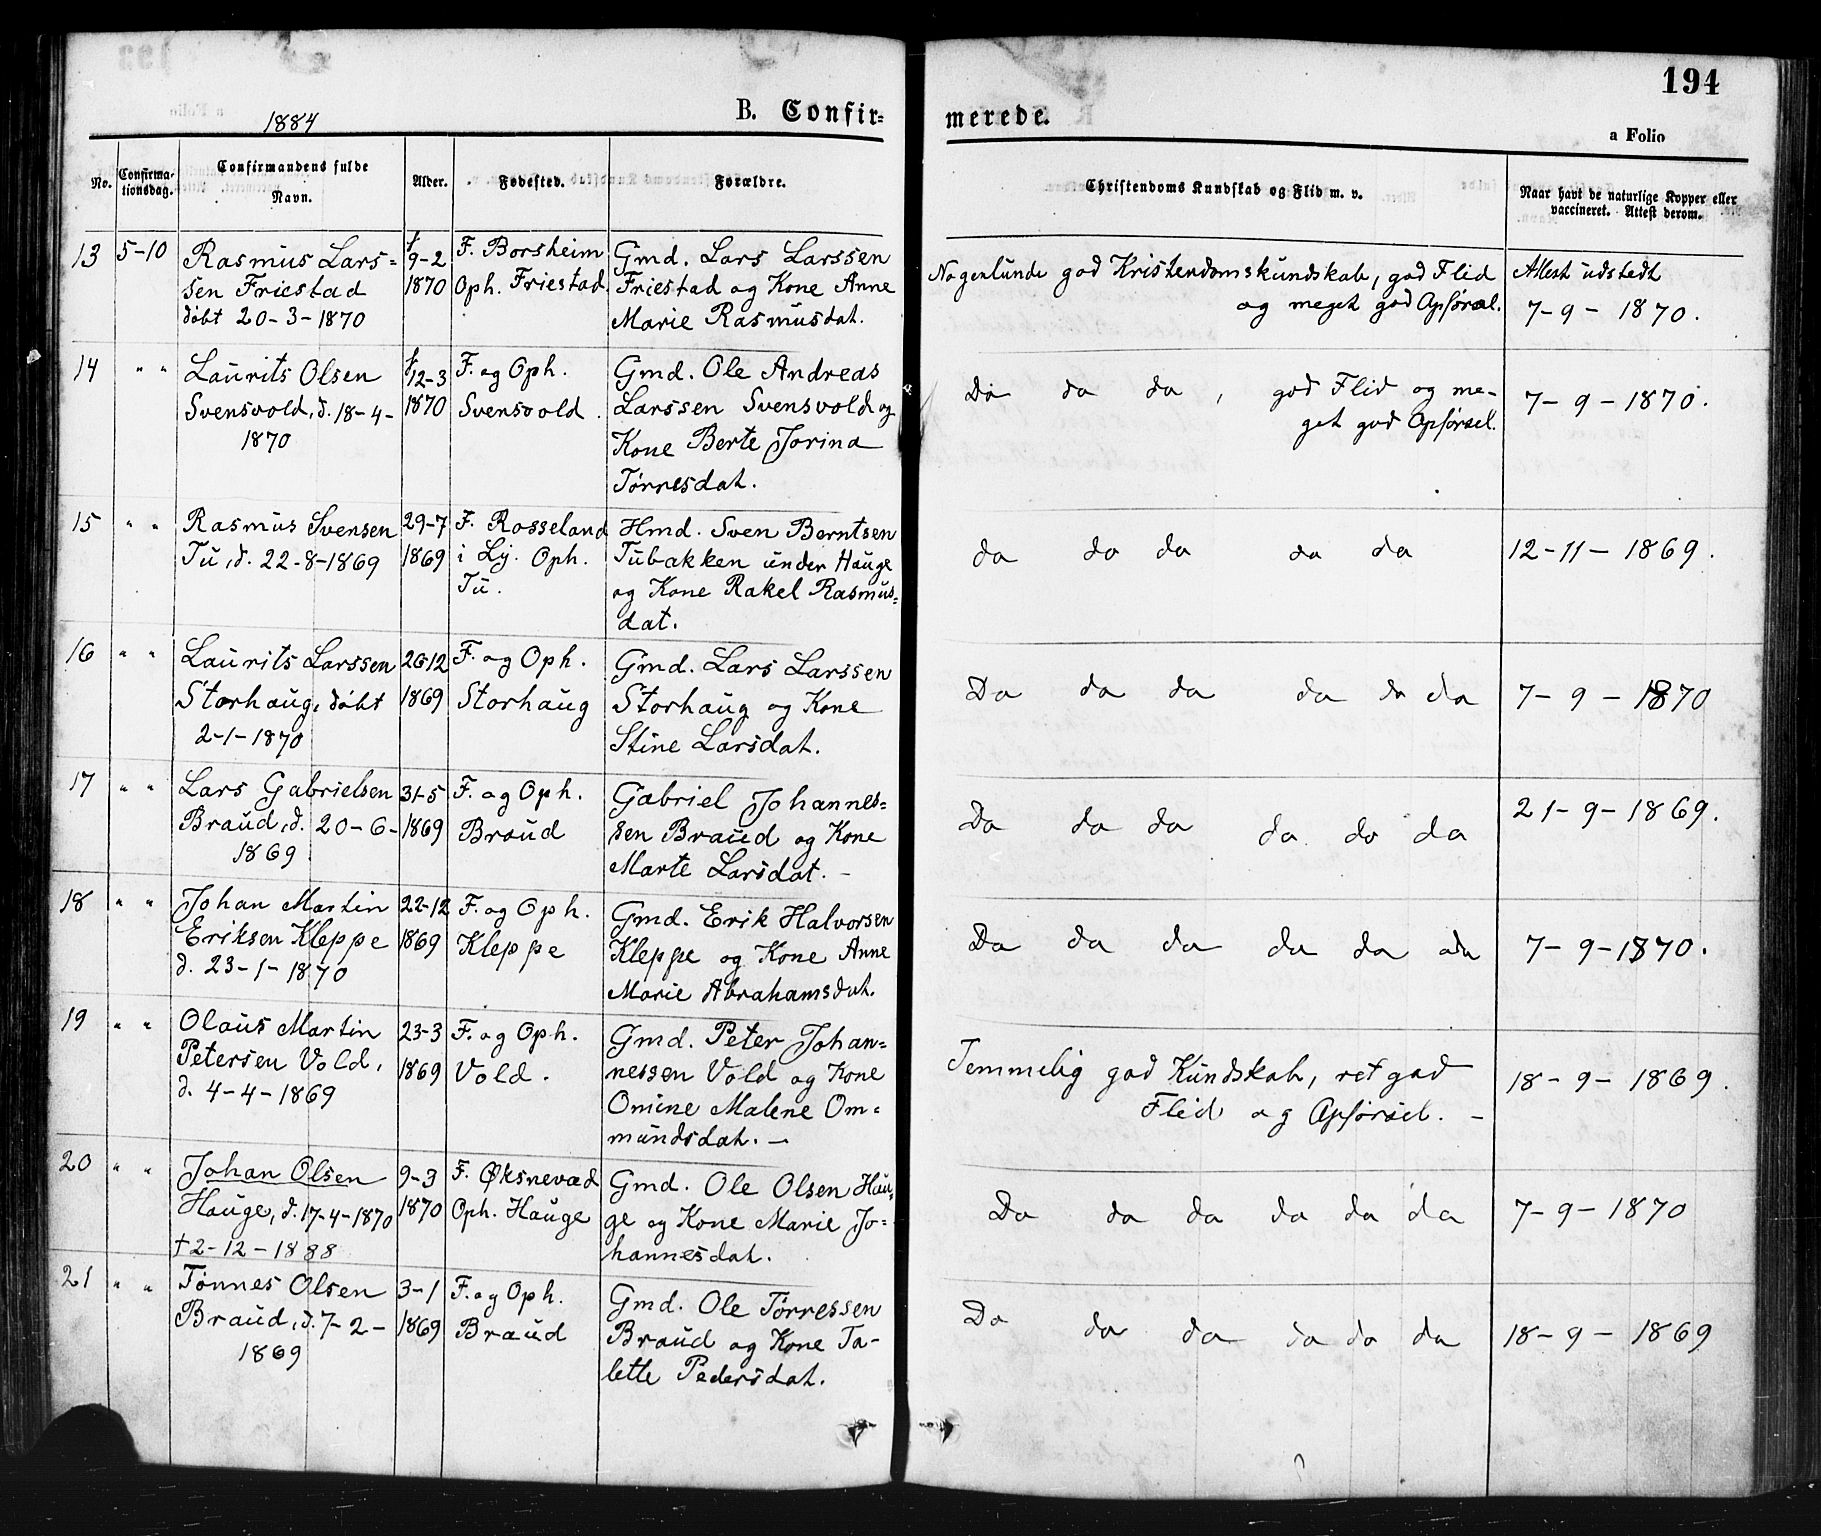 194
1884
B. Confir-
merede.
a Folio
No.
Confirma-
tionsdag.
Confirmandens fulde
Navn.
Alder.
Fødested.
Forældre.
Christendoms Kundskab og Flid m. v.
Naar havt de naturlige Kopper eller
vaccineret. Attest derom.
13 5-10
Rasmus Lars=
sen Friestad
döbt 20-3-1870
f
9-2
1870
F. Borsheim
Oph. Friestad
Gmd. Lars Larssen
Friestad og Kone Anne
Marie Rasmusdat.
Nogenlunde god Kristendomskundskab, god Flid
og meget god Opførsel.
Attest udstedt
7-9-1870.
14 " "
Laurits Olsen
Svensvold, d. 18-4-
1870
f
12-3
1870
F. og Oph.
Svensvold.
Gmd. Ole Andreas
Larssen Svensvold og
Kone Berte Jorina
Tørresdat.
Do do do, god Flid og me-
get god Opførsel.
7-9-1870.
15 " "
Rasmus Svensen
Tu, d. 22-8-1869
29-7
1869
F. Rosseland
i Ly. Oph.
Tu.
Hmd. Sven Berntsen
Tubakken under Hauge
og Kone Rakel Rasmus=
dat.
do do do do do
12-11-1869.
16 " "
Laurits Larssen
Storhaug, döbt
2-1-1870
26-12
1869
F. og Oph.
Storhaug
Gmd. Lars Larssen
Storhaug og Kone
Stine Larsdat.
Do do do do do do
7-9-1870
17 " "
Lars Gabrielsen
Braud, d. 20-6-
1869
31-5
1869
F. og Oph.
Braud
Gabriel Johannes-
sen Braud og Kone
Marte Larsdat. -
Do do do do do do
21-9-1869.
18 " "
Johan Martin
Eriksen Kleppe
d. 23-1-1870
22-12
1869
F. og Oph.
Kleppe
Gmd. Erik Halvorsen
Kleppe og Kone Anne
Marie Abrahamsdat.
Do do do do do do
7-9-1870.
19 " "
Olaus Martin
Petersen Vold,
d. 4-4-1869
23-3
1869
F. og Oph.
Vold.
Gmd. Peter Johan=
nessen Vold og Kone
Omine Malene Om=
mundsdat. -
Temmelig god Kundskab, ret god
Flid og Opførsel. -
18-9-1869.
20 " "
Johan Olsen
Hauge, d. 17-4-1870
† 2-12-1888
9-3
1870
F. Øksnevad
Oph. Hauge
Gmd. Ole Olsen Hau=
ge og Kone Marie Jo=
hannesdat.
Do do do do do do
7-9-1870
21 " "
Tønnes Olsen
Braud, d. 7-2-
1869
3-1
1869
F. og Oph.
Braud
Gmd. Ole Tørressen
Braud og Kone Ta-
lette Pedersdat.
Do do do do do do
18-9-1869